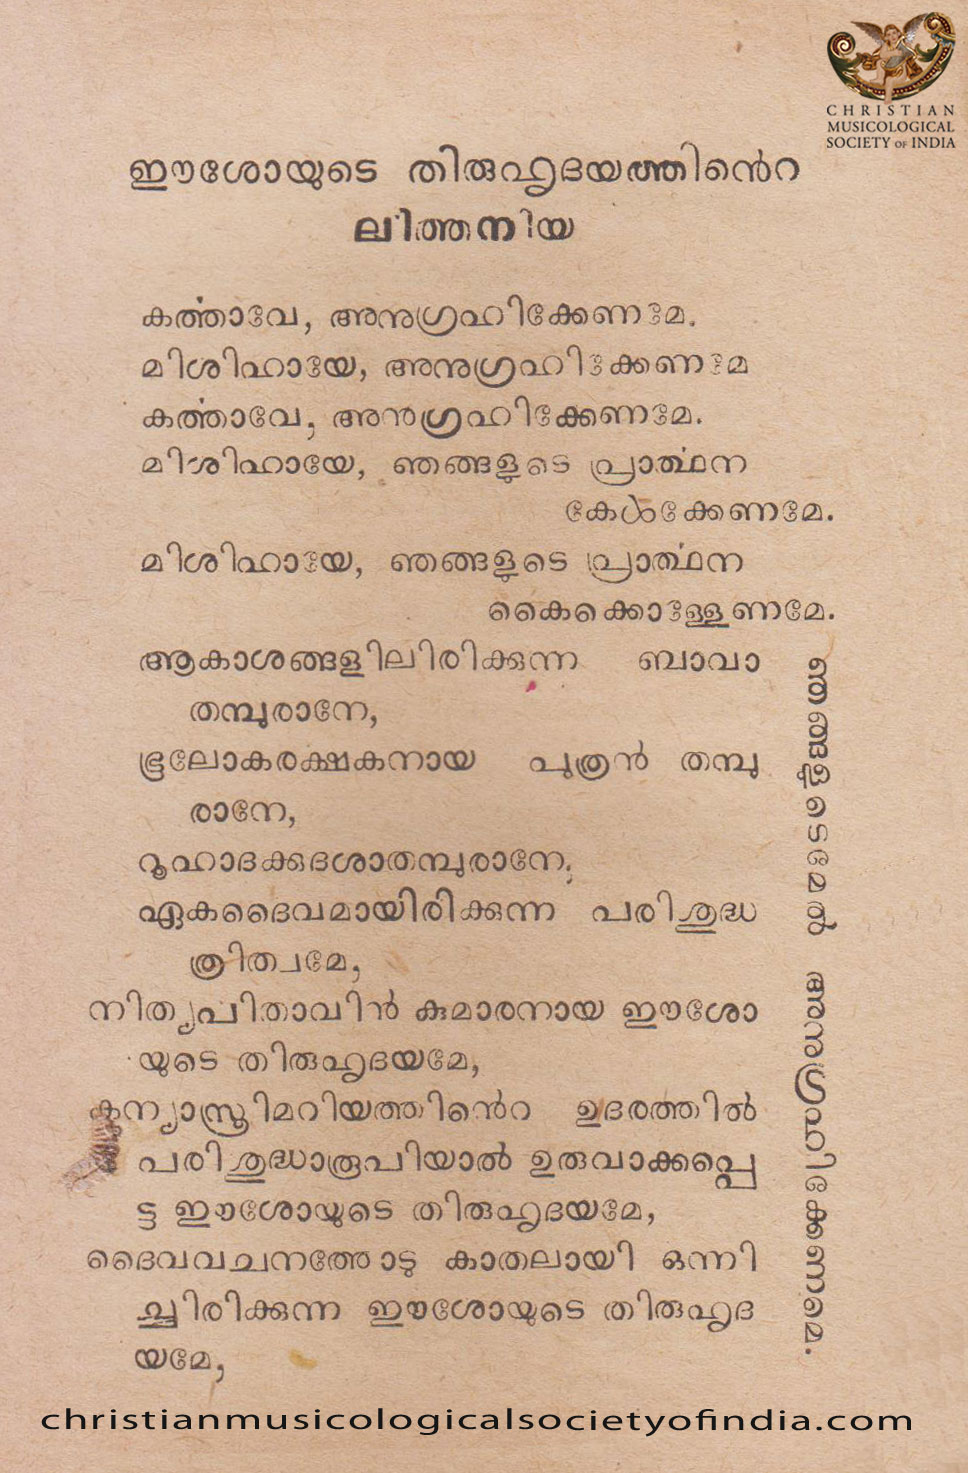 CHRISTIAN
MUSICOLOGICAL
SOCIETY OF INDIA
ഈശോയുടെ തിരുഹൃദയത്തിൻെറ
ലിത്തനിയ
കൎത്താവേ, അനുഗ്രഹിക്കേണമേ.
മിശിഹായേ, അനുഗ്രഹിക്കേണമേ
കൎത്താവേ, അനുഗ്രഹിക്കേണമേ.
മിശിഹായേ, ഞങ്ങളുടെ പ്രാൎത്ഥന
കേൾക്കേണമേ.
മിശിഹായേ, ഞങ്ങളുടെ പ്രാൎത്ഥന
കൈക്കൊള്ളേണമേ.
ആകാശങ്ങളിലിരിക്കുന്ന ബാവാ
തമ്പുരാനേ,
ഭൂലോകരക്ഷകനായ പുത്രൻ തമ്പു
രാനേ,
റൂഹാദക്കുദശാതമ്പുരാനേ,
ഏകദൈവമായിരിക്കുന്ന പരിശുദ്ധ
ത്രിത്വമേ,
നിത്യപിതാവിൻ കുമാരനായ ഈശോ
യുടെ തിരുഹൃദയമേ,
കന്യാസ്ത്രീമറിയത്തിൻെറ ഉദരത്തിൽ
പരിശുദ്ധാരൂപിയാൽ ഉരുവാക്കപ്പെ
ട്ട ഈശോയുടെ തിരുഹൃദയമേ,
ദൈവവചനത്തോടു കാതലായി ഒന്നി
ച്ചിരിക്കുന്ന ഈശോയുടെ തിരുഹൃദ
യമേ,
ഞങ്ങളുടെമേൽ അനുഗ്രഹിക്കേണമേ.
christianmusicologicalsocietyofindia.com